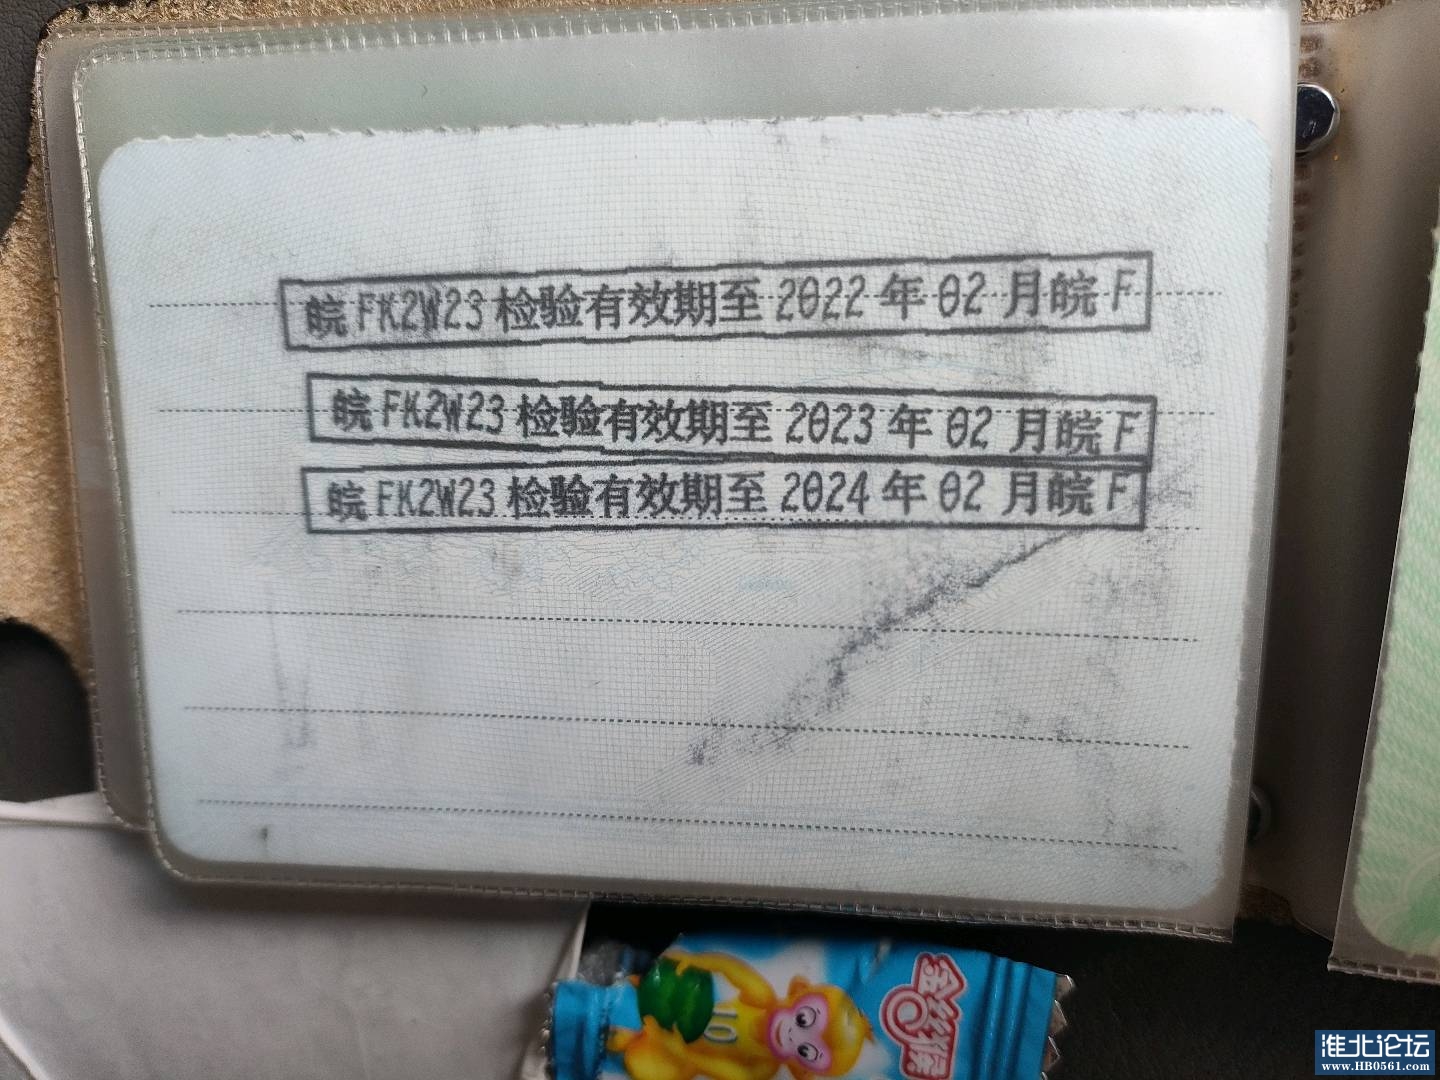 皖FK2W23检验有效期至2022年02月皖F
皖FK2W23检验有效期至2023年02月皖F
皖FK2W23检验有效期至2024年02月皖F
金丝猴
淮北论坛
www.HB0561.com